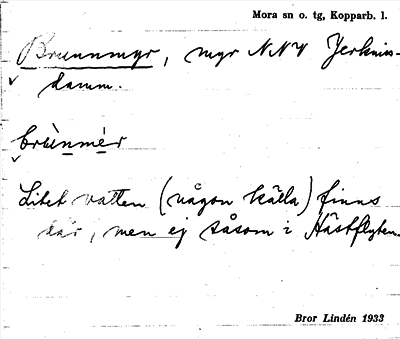 Mora sn o. tg, Kopparb. l.
Brunnmyr, myr NNV Jerkuis-
damm.
brùnmér
Litet vatten (någon källa) finns
där, men ej såsom i Hästflyten.
Bror Lindén 1933